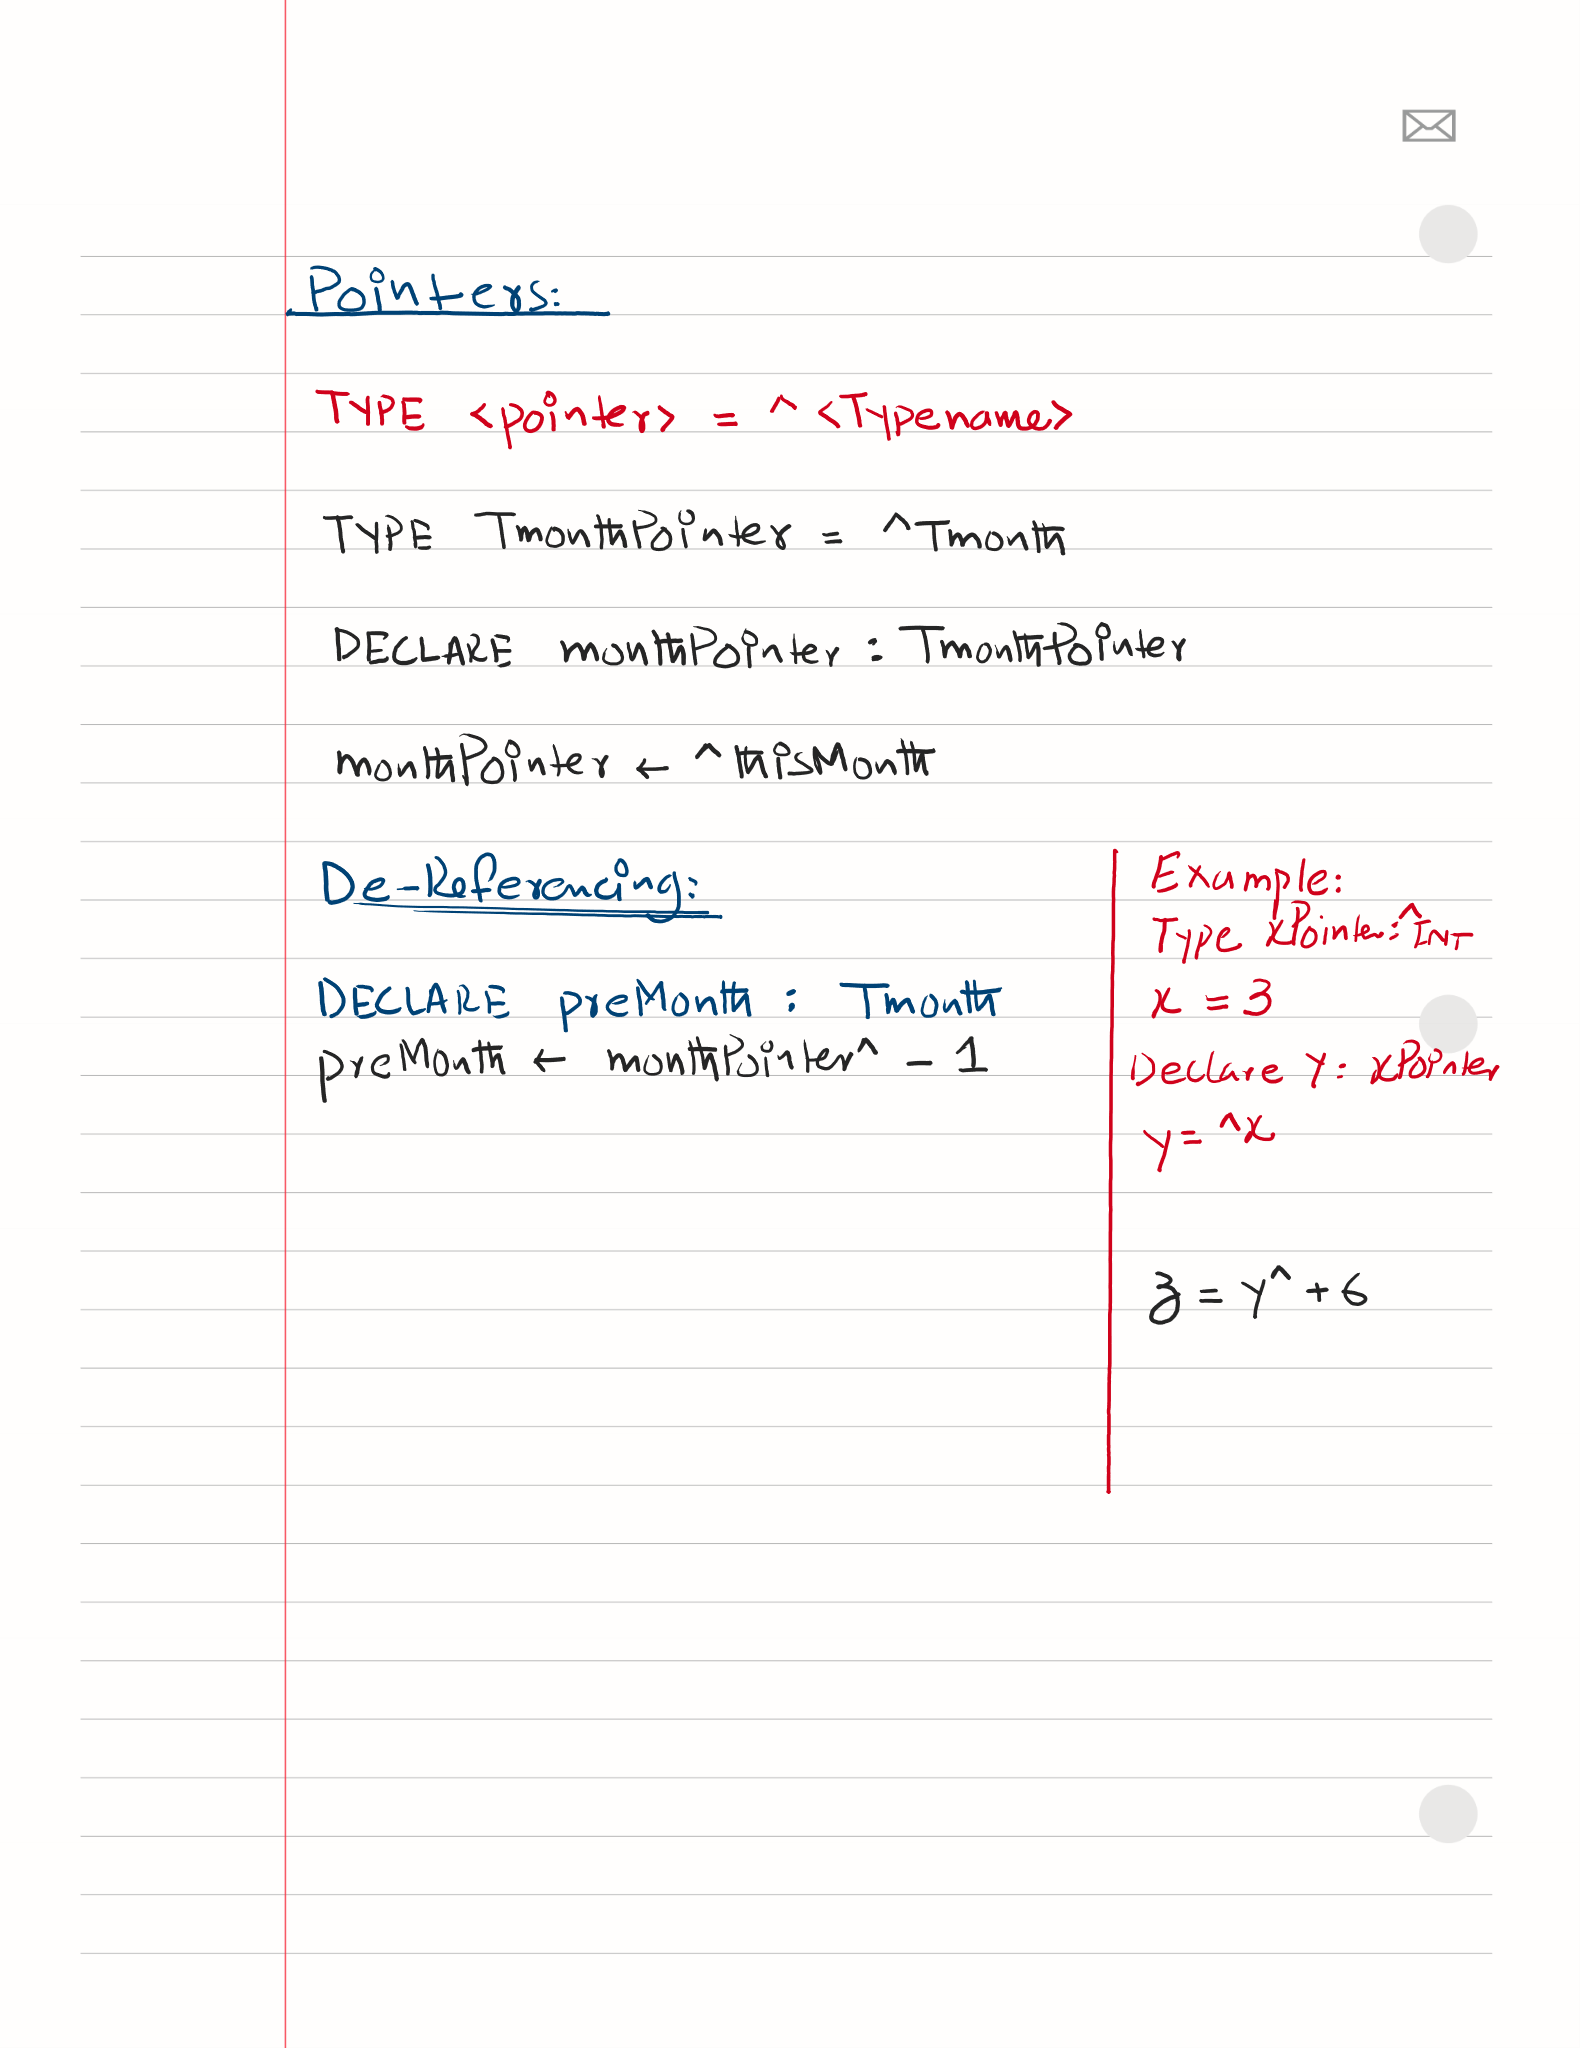 Pointers:
TYPE <pointer> = ^ <Typename>
TYPE TmonthPointer = ^Tmonth
DECLARE monthPointer : TmonthPointer
monthPointer ← ^thisMonth
De-Referencing:
DECLARE preMonth : Tmonth
preMonth ← monthPointer^ - 1
Example:
Type xPointer: ^INT
x = 3
Declare Y: xPointer
y = ^x
z = y^ + 6